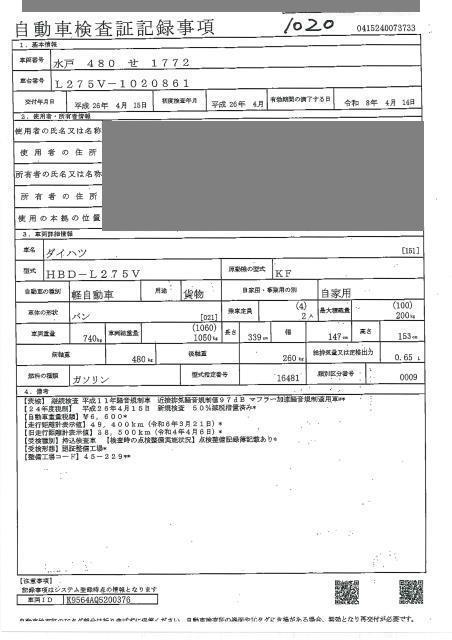 自動車検査証記録事項
1020
0415240073733
1. 基本情報
車両番号 水戸 480 せ 1772
車台番号 L275V-1020861
交付年月日 平成 26年 4月 15日 初度検査年月 平成 26年 4月 有効期間の満了する日 令和 8年 4月 14日
2. 使用者・所有者情報
使用者の氏名又は名称
使用者の住所
所有者の氏名又は名称
所有者の住所
使用の本拠の位置
3. 車両詳細情報
車名 ダイハツ [151]
型式 HBD-L275V 原動機の型式 KF
自動車の種別 軽自動車 用途 貨物 自家用・事業用の別 自家用
車体の形状 バン [021] 乗車定員 (4) 2人 最大積載量 (100) 200kg
車両重量 740kg 車両総重量 (1060) 1050kg 長さ 339cm 幅 147cm 高さ 153cm
前軸重 480kg 後軸重 260kg 総排気量又は定格出力 0.65 L
燃料の種類 ガソリン 型式指定番号 16481 類別区分番号 0009
4. 備考
【茨城】 継続検査 平成11年騒音規制車 近接排気騒音規制値97dB マフラー加速騒音規制適用車*
【24年度税制】 平成26年4月15日 新規検査 50%減税措置済み*
【自動車重量税額】 ¥6,600*
【走行距離計表示値】 49,400km (令和6年3月21日)*
【旧走行距離計表示値】 38,500km (令和4年4月6日)*
【受検種別】 持込検査車 【検査時の点検整備実施状況】 点検整備記録簿記載あり*
【受検形態】 認証整備工場*
【整備工場コード】 45-229**
【注意事項】
記録事項はシステム登録時点の情報となります
車両ID K9564AQ5200376